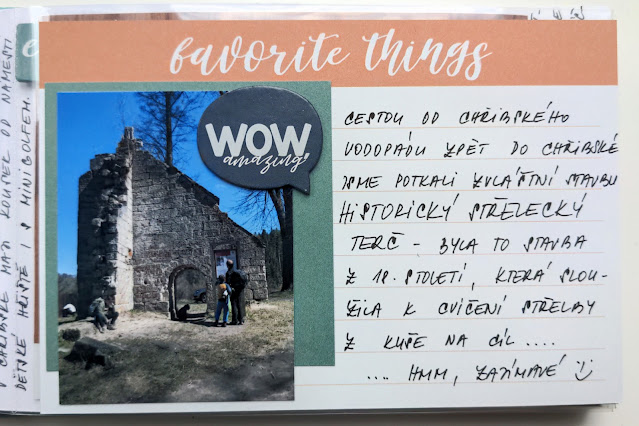 favorite things
WOW
amazing!
CESTOU OD CHŘIBSKÉHO
VODOPÁDU ZPĚT DO CHŘIBSKÉ
JSME POTKALI ZVLÁŠTNÍ STAVBU
HISTORICKÝ STŘELECKÝ
TERČ - BYLA TO STAVBA
Z 18. STOLETÍ, KTERÁ SLOU-
ŽILA K CVIČENÍ STŘELBY
Z KUŠE NA CÍL ....
.... HMM, ZAJÍMAVÉ :)
V CHŘIBSKÉ MAJÍ KOUSEK OD NÁMĚSTÍ
DĚTSKÉ HŘIŠTĚ I S MINIGOLFEM.